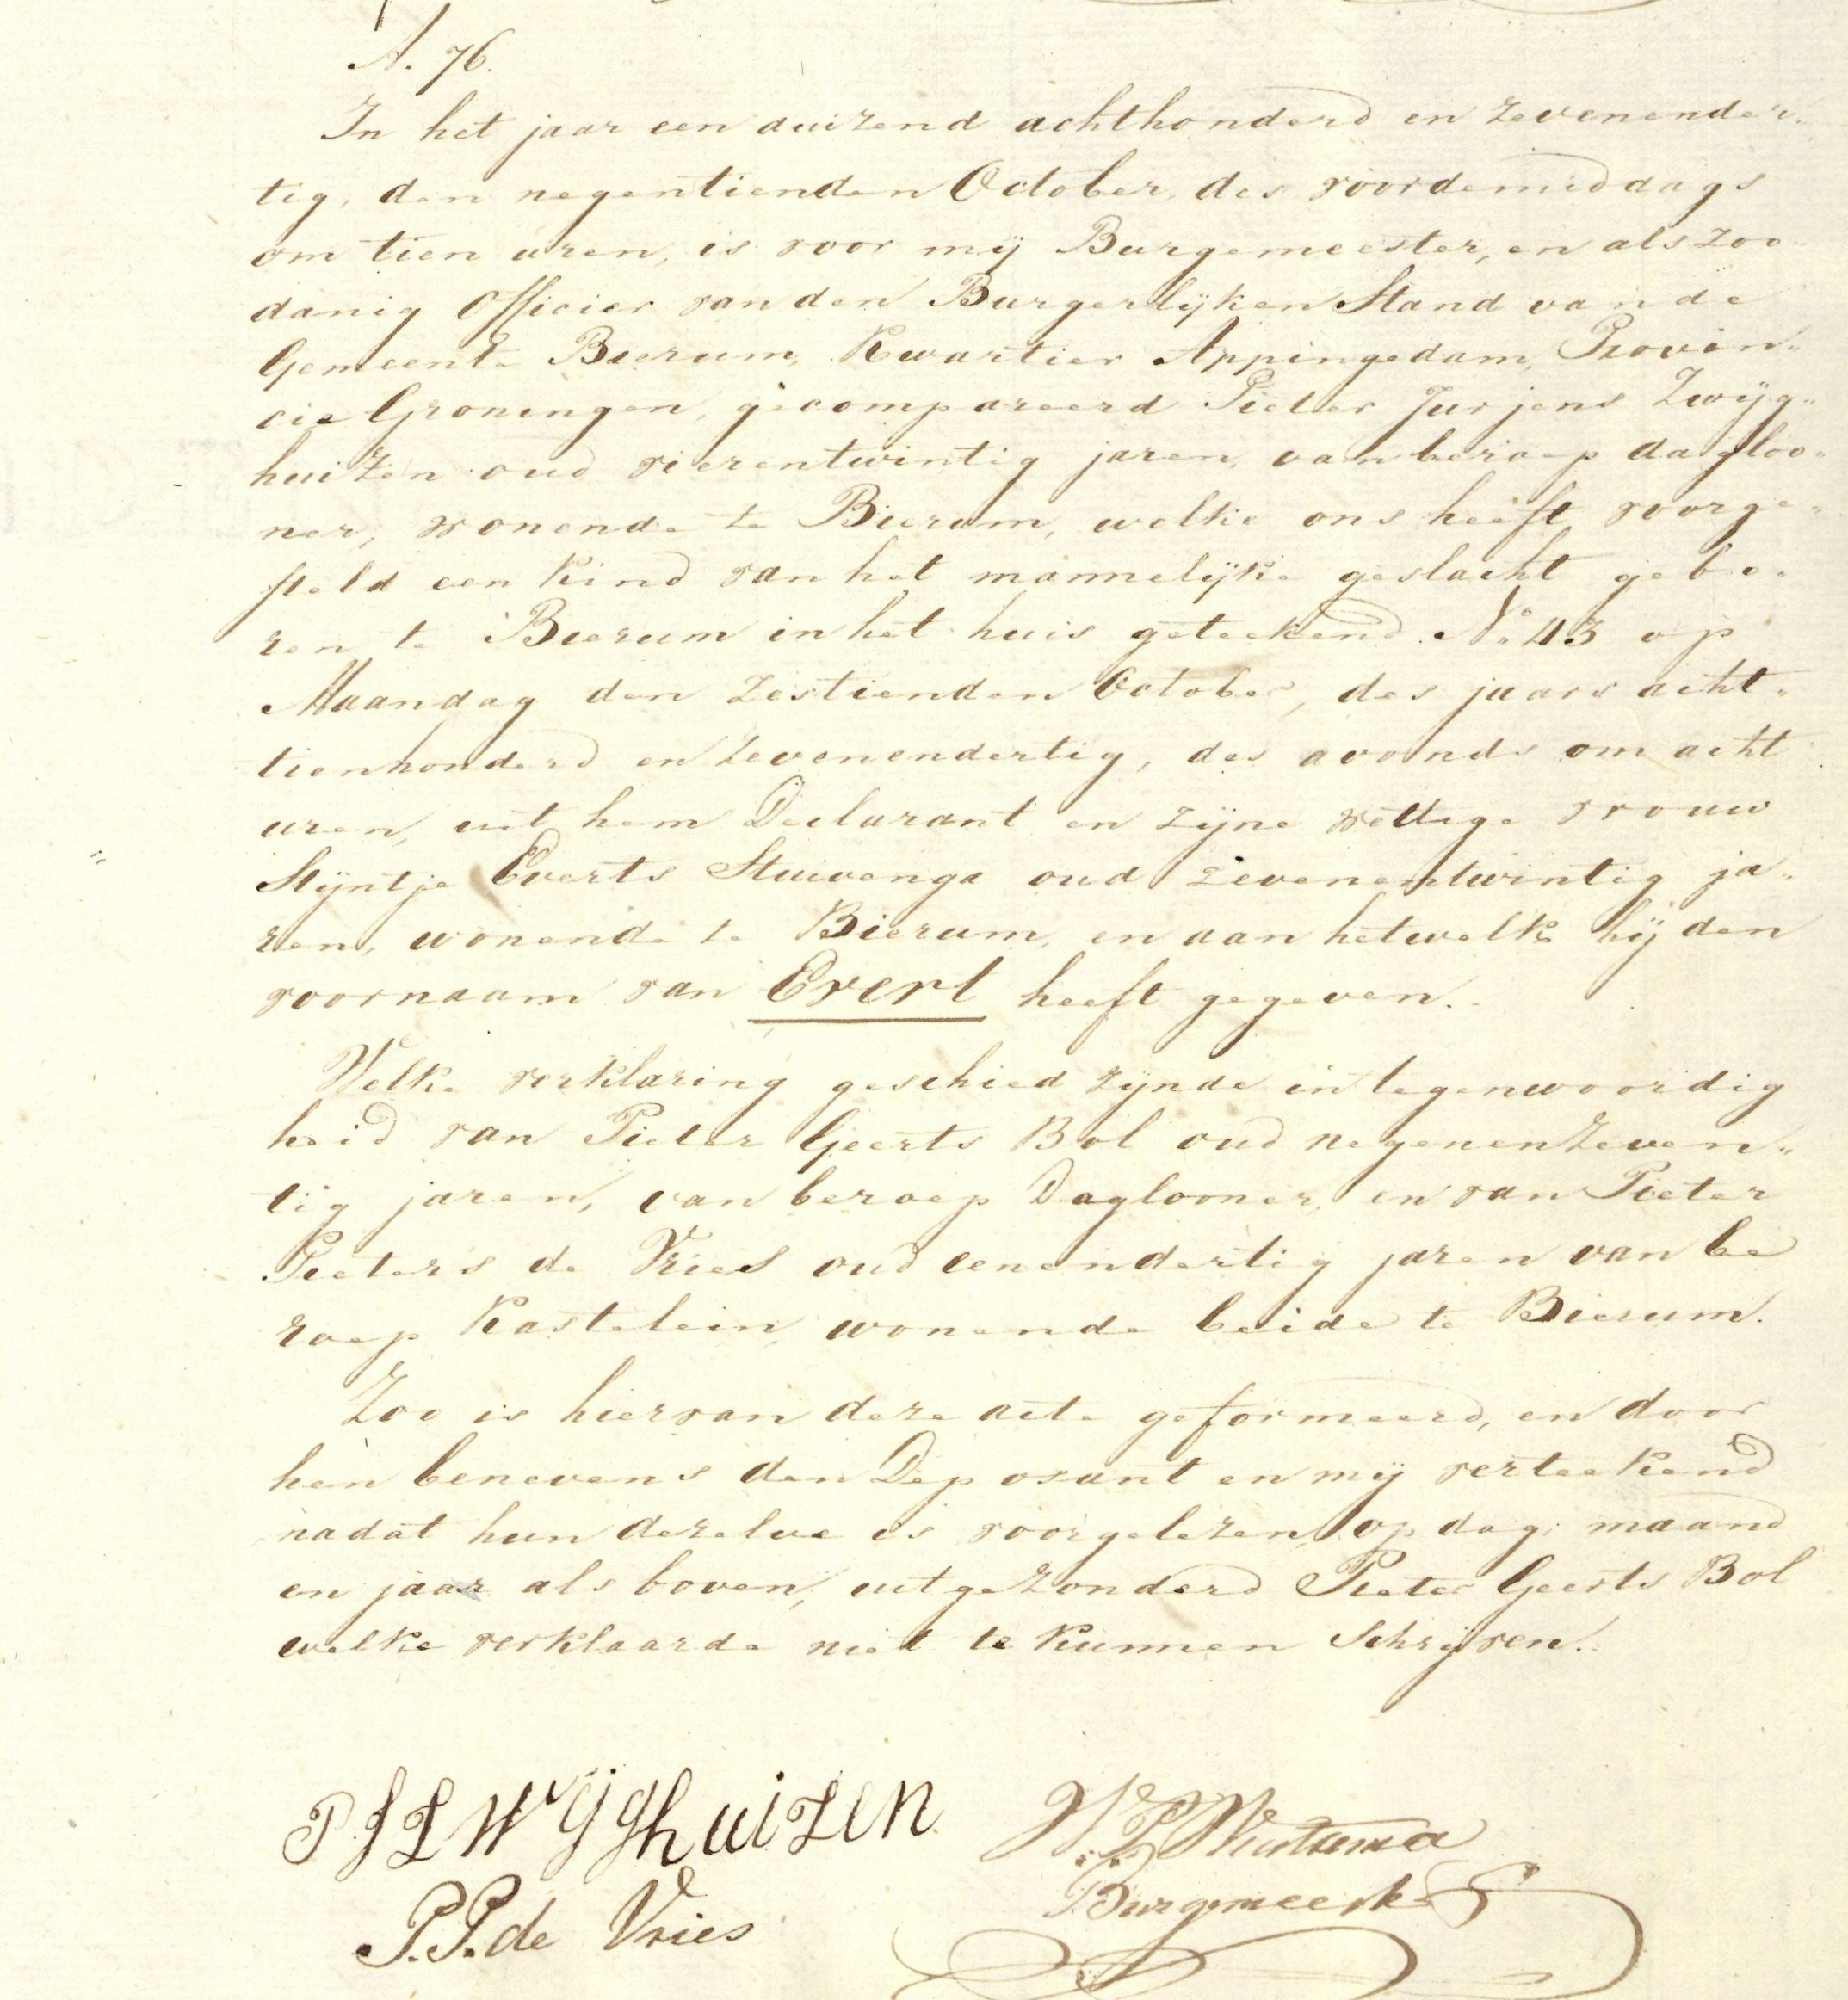 A. 76.
In het jaar een duizend achthonderd en zevenender-
tig, den negentienden October, des voordemiddags
om tien uren, is voor mij Burgemeester, en als zoo
danig Officier van den Burgerlijken Stand van de
Gemeente Bierum, Kwartier Appingedam, Provin-
cie Groningen, gecompareerd Pieter Jurjens Zwijg-
huizen oud vierentwintig jaren, van beroep dagloo-
ner, wonende te Bierum, welke ons heeft voorge-
steld een kind van het mannelijke geslacht gebo-
ren te Bierum in het huis geteekend No 43 op
Maandag den zestienden October, des jaars acht-
tienhonderd en zevenendertig, des avonds om acht
uren, uit hem Declarant en zijne wettige vrouw
Stijntje Everts Stuivenga oud zevenentwintig ja-
ren, wonende te Bierum, en aan hetwelk hij den
voornaam van Evert heeft gegeven.
Welke verklaring geschied zijnde in tegenwoordig
heid van Pieter Geerts Bol oud negenenzeven-
tig jaren, van beroep Daglooner, en van Pieter
Pieters de Vries oud eenendertig jaren van be
roep Kastelein, wonende beide te Bierum.
Zoo is hiervan deze acte geformeerd, en door
hen benevens den Deposant en mij verteekend
nadat hun dezelve is voorgelezen, op dag, maand
en jaar als boven, uitgezonderd Pieter Geerts Bol
welke verklaarde niet te kunnen Schrijven.
P J Z Wijghuizen
P. P. de Vries
Burgemeester